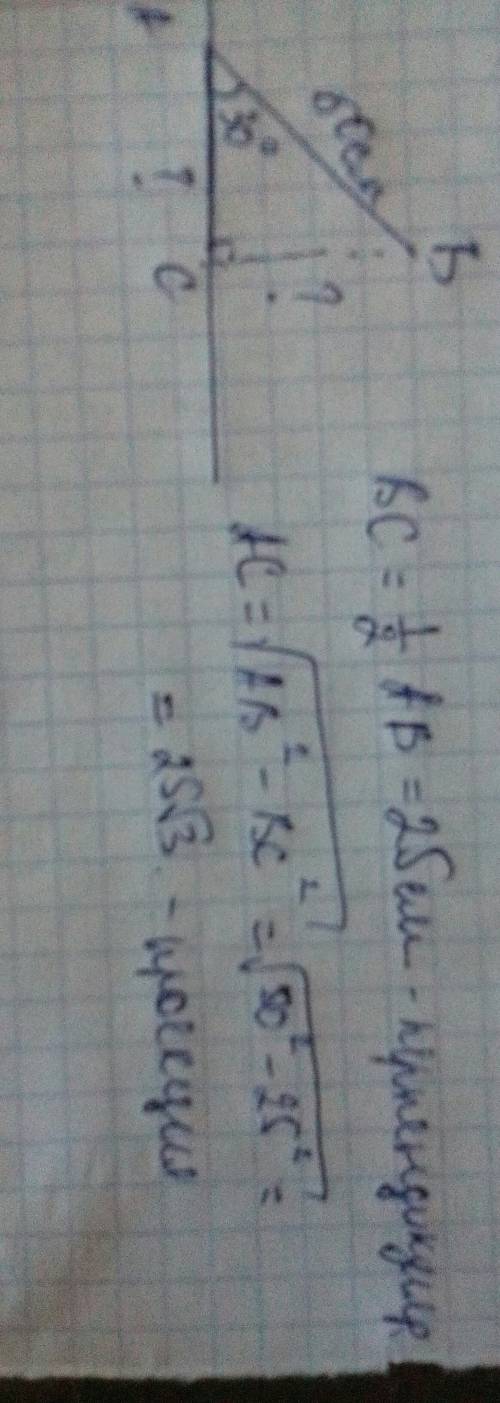 B
50см
?
30°
A
?
C
BC = 1/2 AB = 25см - перпендикуляр
AC = √(AB² - BC²) = √(50² - 25²) =
= 25√3 - проекция